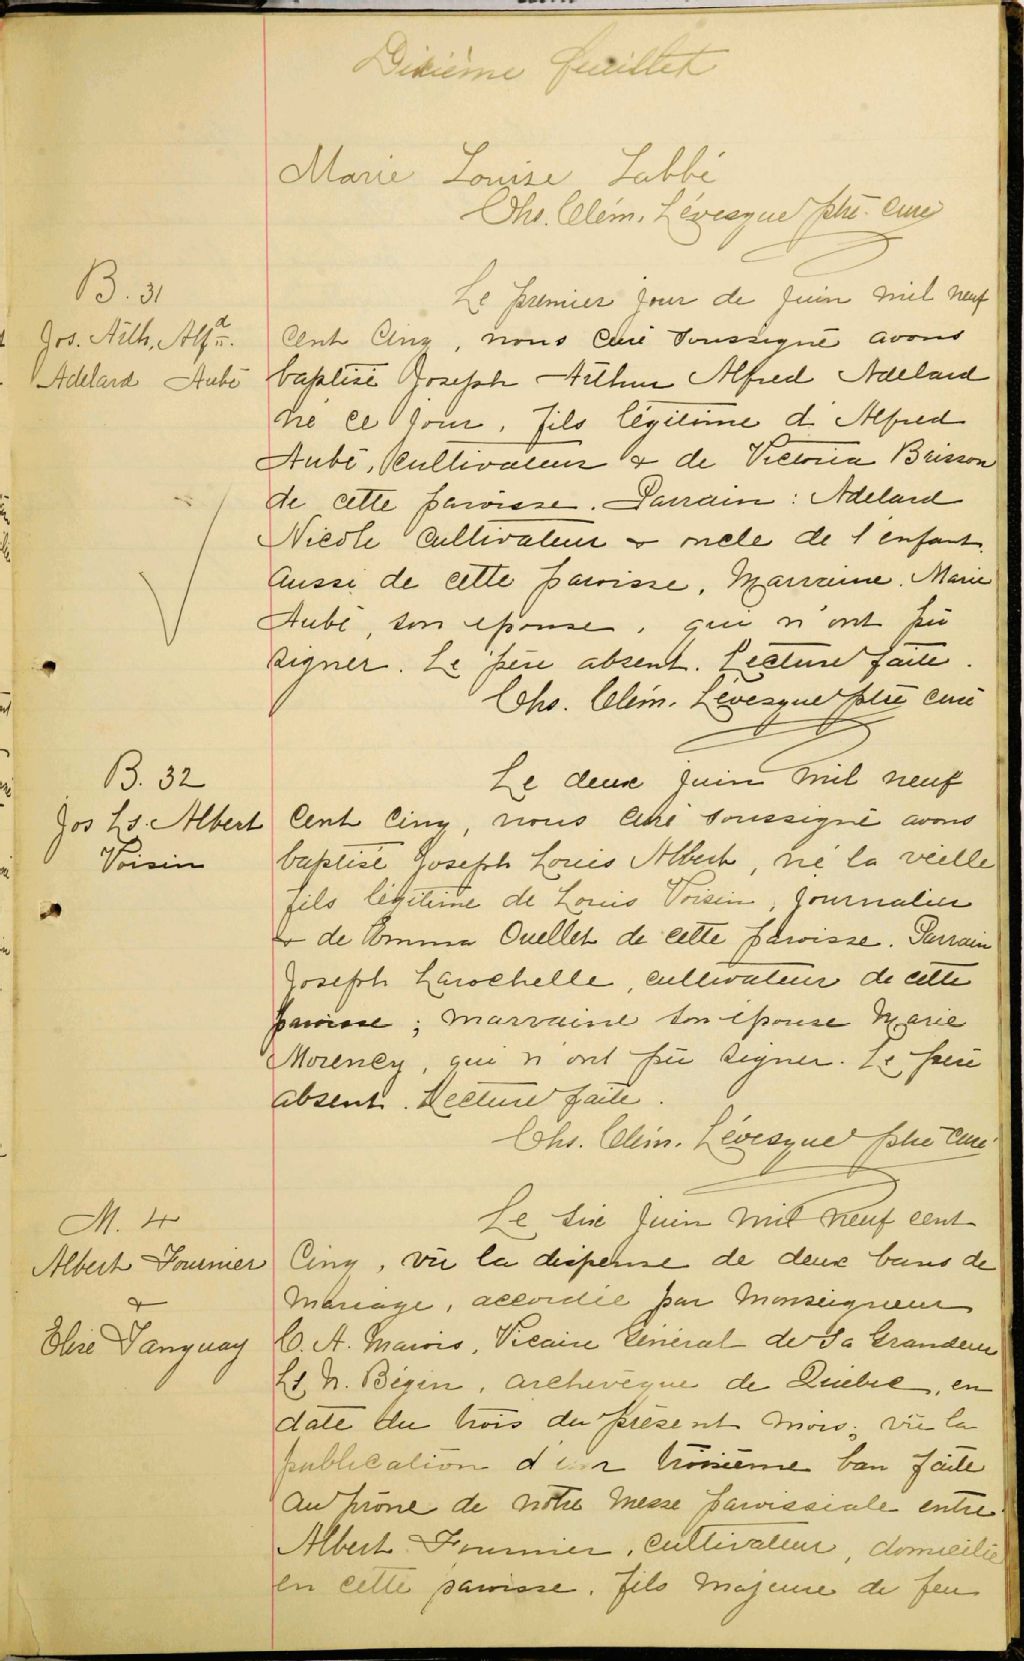 Dixième feuillet
Marie Louise Labbé
Chs. Clém. Lévesque ptre curé
B. 31
Jos. Arth. Alf.d
Adelard Aubé
Le premier jour de juin mil neuf
cent cinq, nous curé soussigné avons
baptisé Joseph Arthur Alfred Adelard
né ce jour, fils légitime d'Alfred
Aubé, cultivateur & de Victoria Brisson
de cette paroisse. Parrain : Adelard
Nicole cultivateur & oncle de l'enfant,
aussi de cette paroisse, Marraine. Marie
Aubé, son épouse, qui n'ont pû
signer. Le père absent. Lecture faite.
Chs. Clém. Lévesque ptre curé
B. 32
Jos Ls. Albert
Voisin
Le deux juin mil neuf
cent cinq, nous curé soussigné avons
baptisé Joseph Louis Albert, né la vieille
fils légitime de Louis Voisin, journalier
& de Emma Ouellet de cette paroisse. Parrain
Joseph Larochelle, cultivateur de cette
paroisse ; marraine son épouse Marie
Morency, qui n'ont pû signer. Le père
absent. Lecture faite.
Chs. Clém. Lévesque ptre curé
M. 4
Albert Fournier
&
Elise Tanguay
Le six juin mil neuf cent
cinq, vû la dispense de deux bans de
mariage, accordée par Monseigneur
C. A. Marois, Vicaire Général de Sa Grandeur
Ls N. Bégin, archevêque de Québec, en
date du trois du présent mois; vû la
publication d'un troisième ban faite
au prône de notre messe paroissiale entre
Albert Fournier, cultivateur, domicilié
en cette paroisse, fils majeure de feu